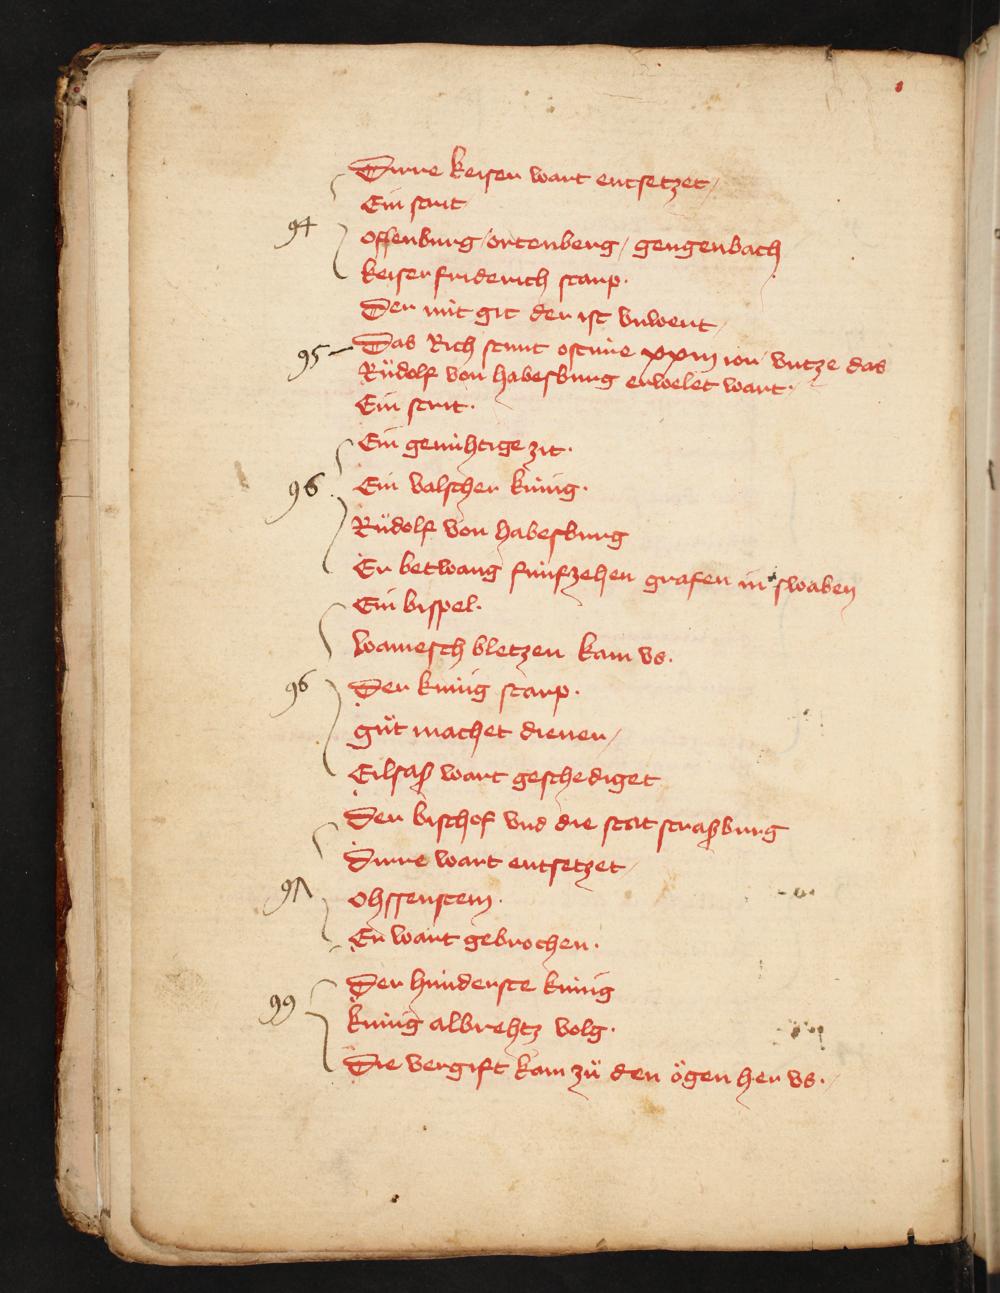 Dirre keiser wart entsetzet /
Ein strit
94 offenburg / ortenberg / gengenbach
keiser friderich starp ·
Der mit git der ist unwert /
95 Das Rich stunt ostůne xxiij ior / untze das
Růdolf von habesburg erwelet wart ·
Ein strit ·
Ein genuhtige zit ·
96 Ein valscher kunig ·
Růdolf von habesburg
Er betwang funfzehen grafen in swaben
Ein bispel ·
wamesch bletzen kam us ·
96 Der kunig starp ·
gůt machet diener /
Eilsas wart geschediget
Der bischof und die stat straßburg
Dirre wart entsetzet /
97 ohssenstein ·
Er wart gebrochen ·
Der hunderste kunig
99 kunig albrehtz volg ·
Die vergift kam zů den ögen her us ·